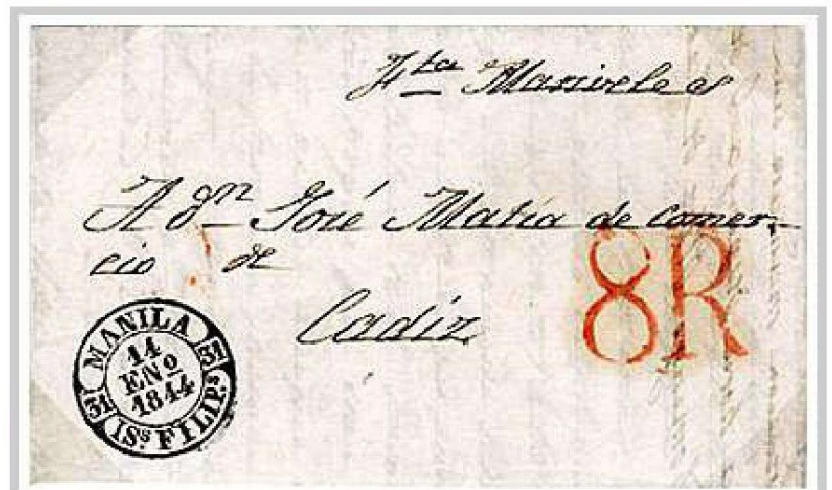 Fta Mariveles
A Dn José Matia de Comer-
cio de
Cadiz
8R
MANILA
31
14
ENo
1844
31
ISs FILIPs